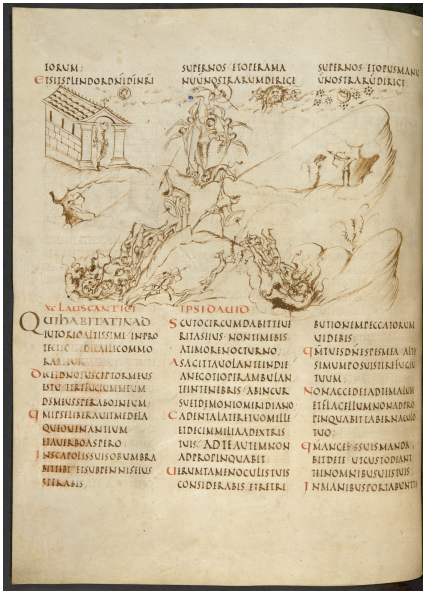 TORUM;
ETSITSPLENDORDNIDINRI
SUPERNOS ETOPERAMA
NUUNOSTRARUMDIRIGE
SUPERNOS ETOPUSMANU
UNOSTRARUDIRIGE;
XC LAUS CANTICI
QUIHABITATINAD
IUTORIOALTISSIMI INPRO
DICET DNOSUSCEPTORMEUS
ESTU ETREFUGIUMMEUM
DSMEUSSPERABOINEUM;
QMIPSELIBERAUITMEDELA
QUEOUENANTIUM
ETAUERBOASPERO;
INSCAPULISSUISOBUMBRA
BITTIBI ETSUBPENNISEIUS
SPERABIS;
IPSI DAUID
SCUTOCIRCUMDABITTEUE
RITASEIUS NONTIMEBIS
ATIMORENOCTURNO;
ASAGITTAUOLANTEINDIE
ANEGOTIOPERAMBULAN
TEINTENEBRIS ABINCUR
SUETDEMONIOMERIDIANO
CADENTALATERETUOMILLE
ETDECEMMILIAADEXTRIS
TUIS; ADTEAUTEMNON
ADPROPINQUABIT;
UERUMTAMENOCULISTUIS
CONSIDERABIS ETRETRI
BUTIONEMPECCATORUM
UIDEBIS;
QMTUESDNESPESMEA ALTIS
SIMUMPOSUISTIREFUGIU
TUUM;
NONACCEDETADTEMALUM
ETFLAGELLUMNONADPRO
PINQUABITTABERNACULO
TUO;
QMANGELISSUISMANDA
BITDETE UTCUSTODIANT
TEINOMNIBUSUIISTUIS;
INMANIBUSPORTABUNTTE